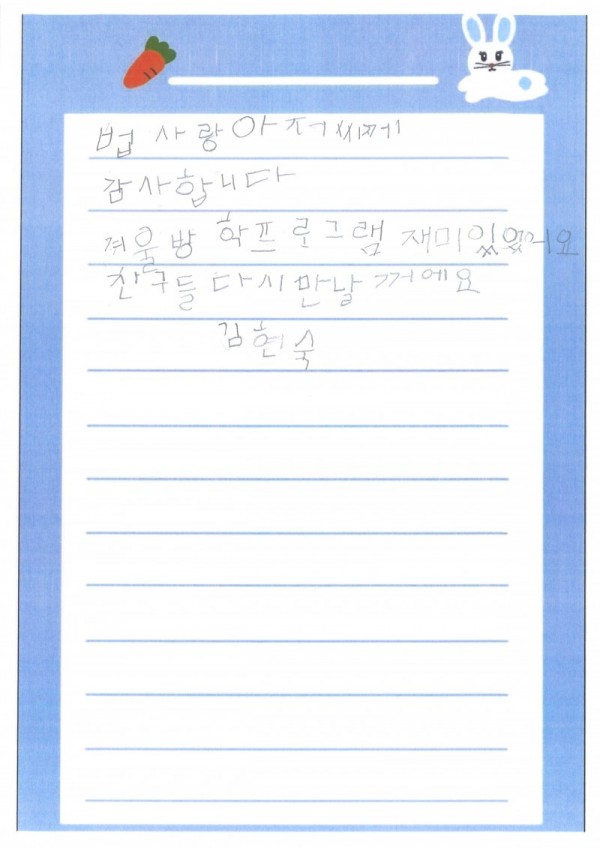 법 사랑 아저씨께
감사합니다
겨울방학프로그램 재미있었어요
친구들 다시 만날꺼에요
김현숙